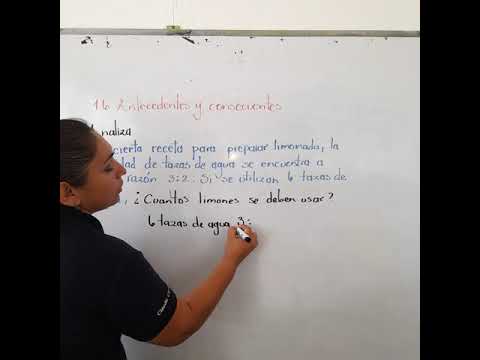 1.6 Antecedentes y consecuentes
Analiza
cierta receta para preparar limonada, la
de tazas de agua se encuentra a
razón 3:2. Si se utilizan 6 tazas de
, ¿Cuántos limones se deben usar?
6 tazas de agua 3: